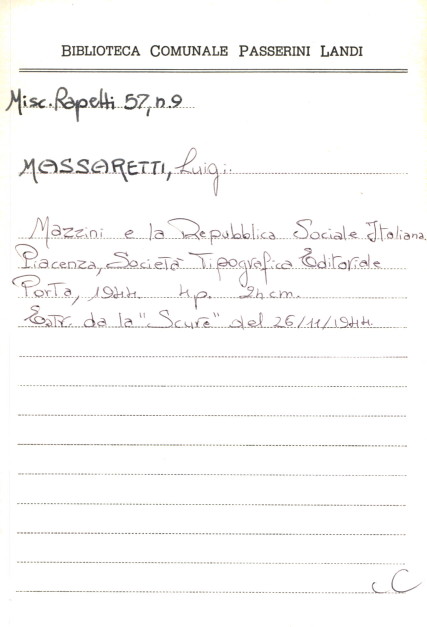 BIBLIOTECA COMUNALE PASSERINI LANDI
Misc. Rapetti 57, n. 9
MASSARETTI, Luigi.
Mazzini e la Repubblica Sociale Italiana.
Piacenza, Società Tipografica Editoriale
Porta, 1944. 4 p. 24 cm.
Estr. da la "Scure" del 26/11/1944.
C